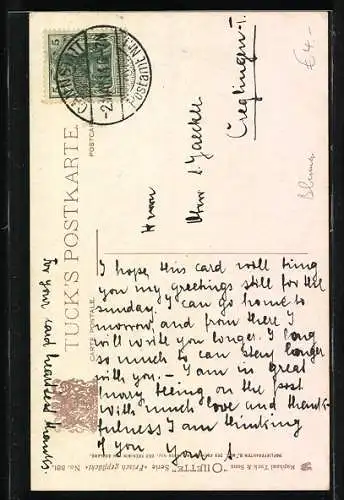 TUCK'S POSTKARTE.
CARTE POSTALE.
POSTCARD
CANNSTATT
Postamt Nr. 1
5 5
£4.-
Blumen
Herrn
Creglingen
I hope this card will bring
you my greetings still for the
sunday. I can go home to
morrow and from there I
will write you longer. I long
so much to can stay longer
with you. - I am in great
hurry being on the post
With much love and thank-
fulness I am thinking
of you
For your card heartiest thanks.
Raphael Tuck & Sons' "OILETTE" Serie «Frisch gepflückt» No. 881